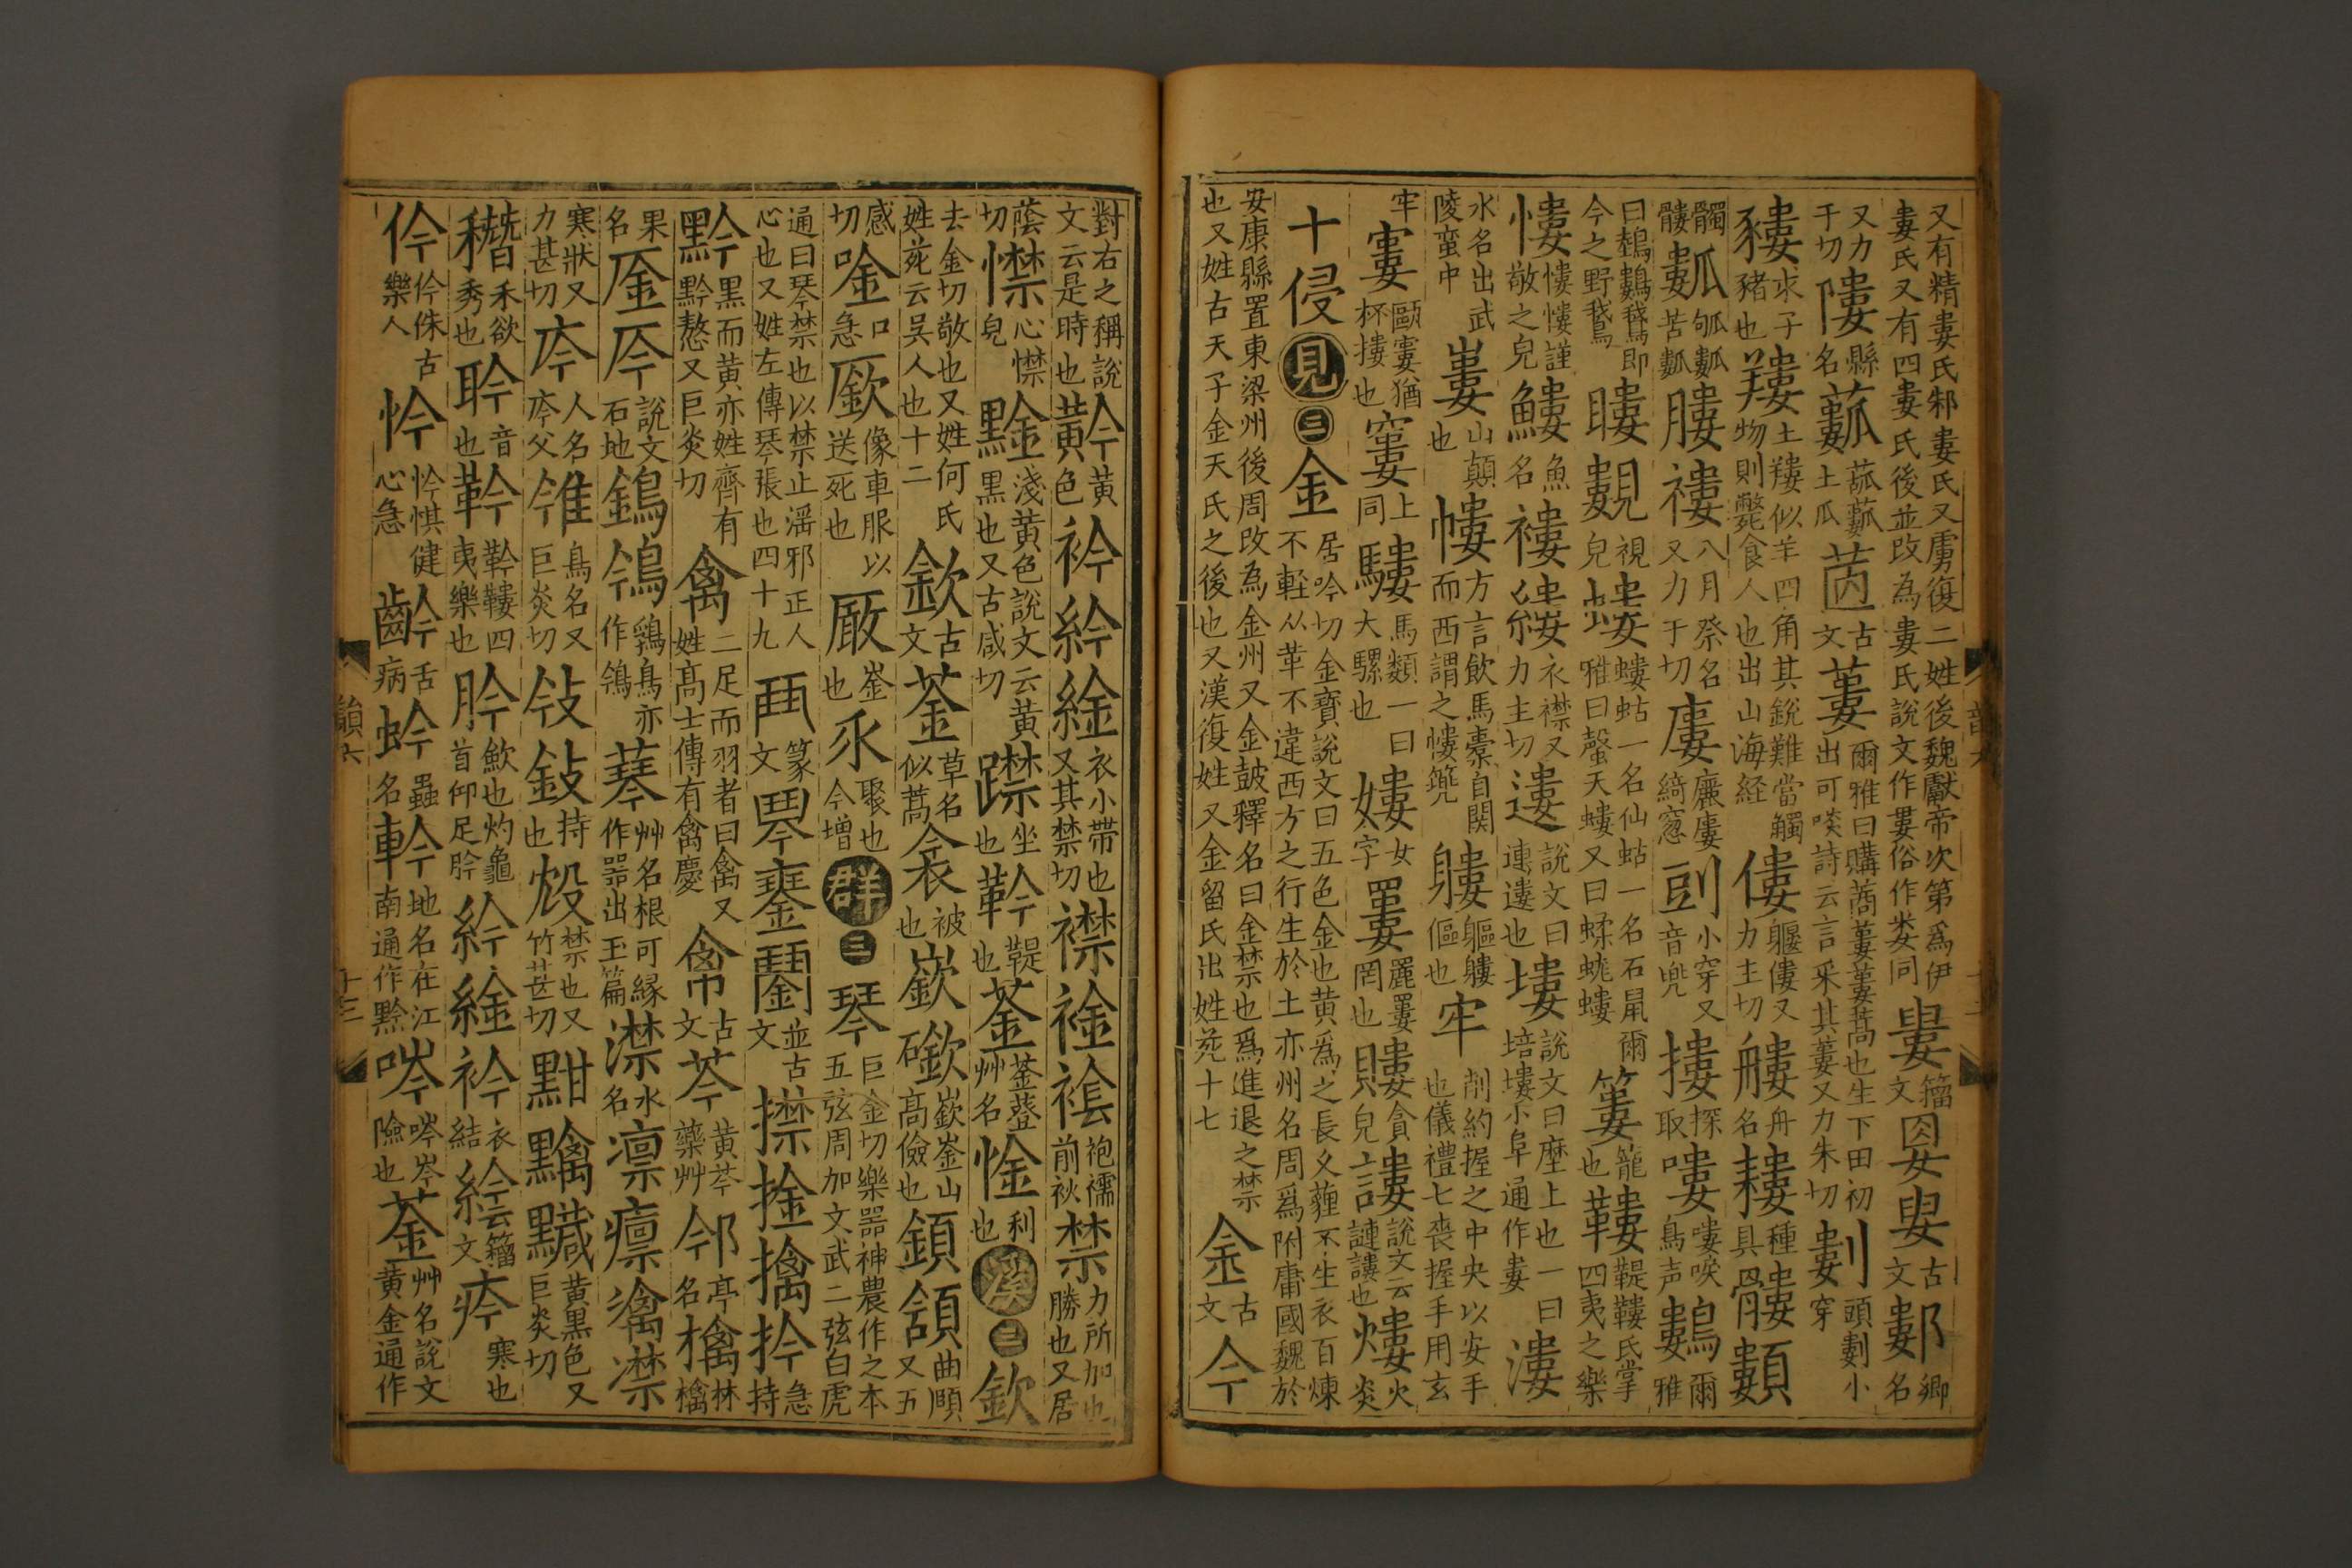 又有精婁氏邾婁氏又虜復二姓後魏獻帝次第爲伊
婁氏又有四婁氏後並改為婁氏說文作婁俗作娄同婁籀文𡝤㛹古文鄻鄉名
又力于切慺縣名蓏土瓜𦭞古文蔞爾雅曰購蔏蔞蔞蒿也生下田初出可啖詩云言采其蔞又力朱切剅頭剅小穿
貗求子豬也䍣土䍣似羊四角其銳難當觸物則斃食人也出山海経僂軀僂又力主切艛舟名耬種具髏顟
髑髏㼋㼌㼋苦瓠膢䄛八月祭名又力于切廔廲廔綺窓剅小穿又音兜摟探取嘍嘍唳鳥声鷜爾雅
曰鵱鷜鵞即今之野鵞瞜䁖視皃螻螻蛄一名仙蛄一名石鼠爾雅曰螜天螻又曰蝚蛖螻簍籠也鞻鞮鞻氏掌四夷之樂
慺慺慺謹敬之皃鱳魚名褸縷衣襟又力主切遱說文曰連遱也塿說文曰塺土也一曰培塿小阜通作婁漊
水名出武陵蛮中嶁山顛也㡞方言飲馬橐自関而西謂之㡞篼軁軀軁傴也牢削約握之中央以安手也儀禮七喪握手用玄
牢寠甌寠猶杯摟也窶上同䮫馬類一曰大騾也嫂女字䍫麗䍫罔也䝏貪皃謱說文云謰謱也熡火炎
十侵見三金居吟切金寶說文曰五色金也黄爲之長乆薶不生衣百煉不輕从革不違西方之行生於土亦州名周爲附庸國魏於
安康縣置東梁州後周改為金州又金鼓釋名曰金禁也爲進退之禁也又姓古天子金天氏之後也又漢復姓又金留氏出姓苑十七金古文今
對右之稱說文云是時也黅黄色衿紟䋮衣小帶也又其禁切襟䘳䙆袍襦前袂禁力所加也勝也又居
蔭切㦗心㦗皃黅黑淺黄色說文云黄黑也又古咸切䠴坐也䪩鞮也荶荶䔲艸名惍利也溪三欽
去金切敬也又姓何氏姓苑云吴人也十二𨥆古文菳草名似蒿衾被也嶔礉嶔崟山高儉也顉頷曲頤又五
感切唫口急廞像車服以送死也厰崟也乑聚也今増群三琴巨金切樂器神農作之本五弦周加文武二弦白虎
通曰琴禁也以禁止淫邪正人心也又姓左傳琴張也四十九𤦡篆文珡𨥙𨭖並古文㩒捦擒扲急持
黔黑而黄亦姓齊有黔憝又巨炎切禽二足而羽者曰禽又姓高士傳有禽慶肣古文芩黄芩藥艸邻亭名檎林檎
果名厒厈說文石地鵭鳹鶏鳥亦作鳹菳艸名根可緣作器出玉篇澿水名凛癛㵄澿
寒狀又力甚切庈人名庈父雂鳥名又巨炎切㪁𢼄持也㱽禁也又竹甚切黚䵚䵛黄黑色又巨炎切
䅾禾欲秀也耹音也靲靲鞻四夷樂也肣歛也灼龜首仰足肣紟䋮衿衣結䋮籀文疩寒也
伶伶侏古樂人忴忴惧健心急齡舌病蚙蟲名軡地名在江南通作黔唥唥岑險也菳艸名說文黄金通作
韻六
十三